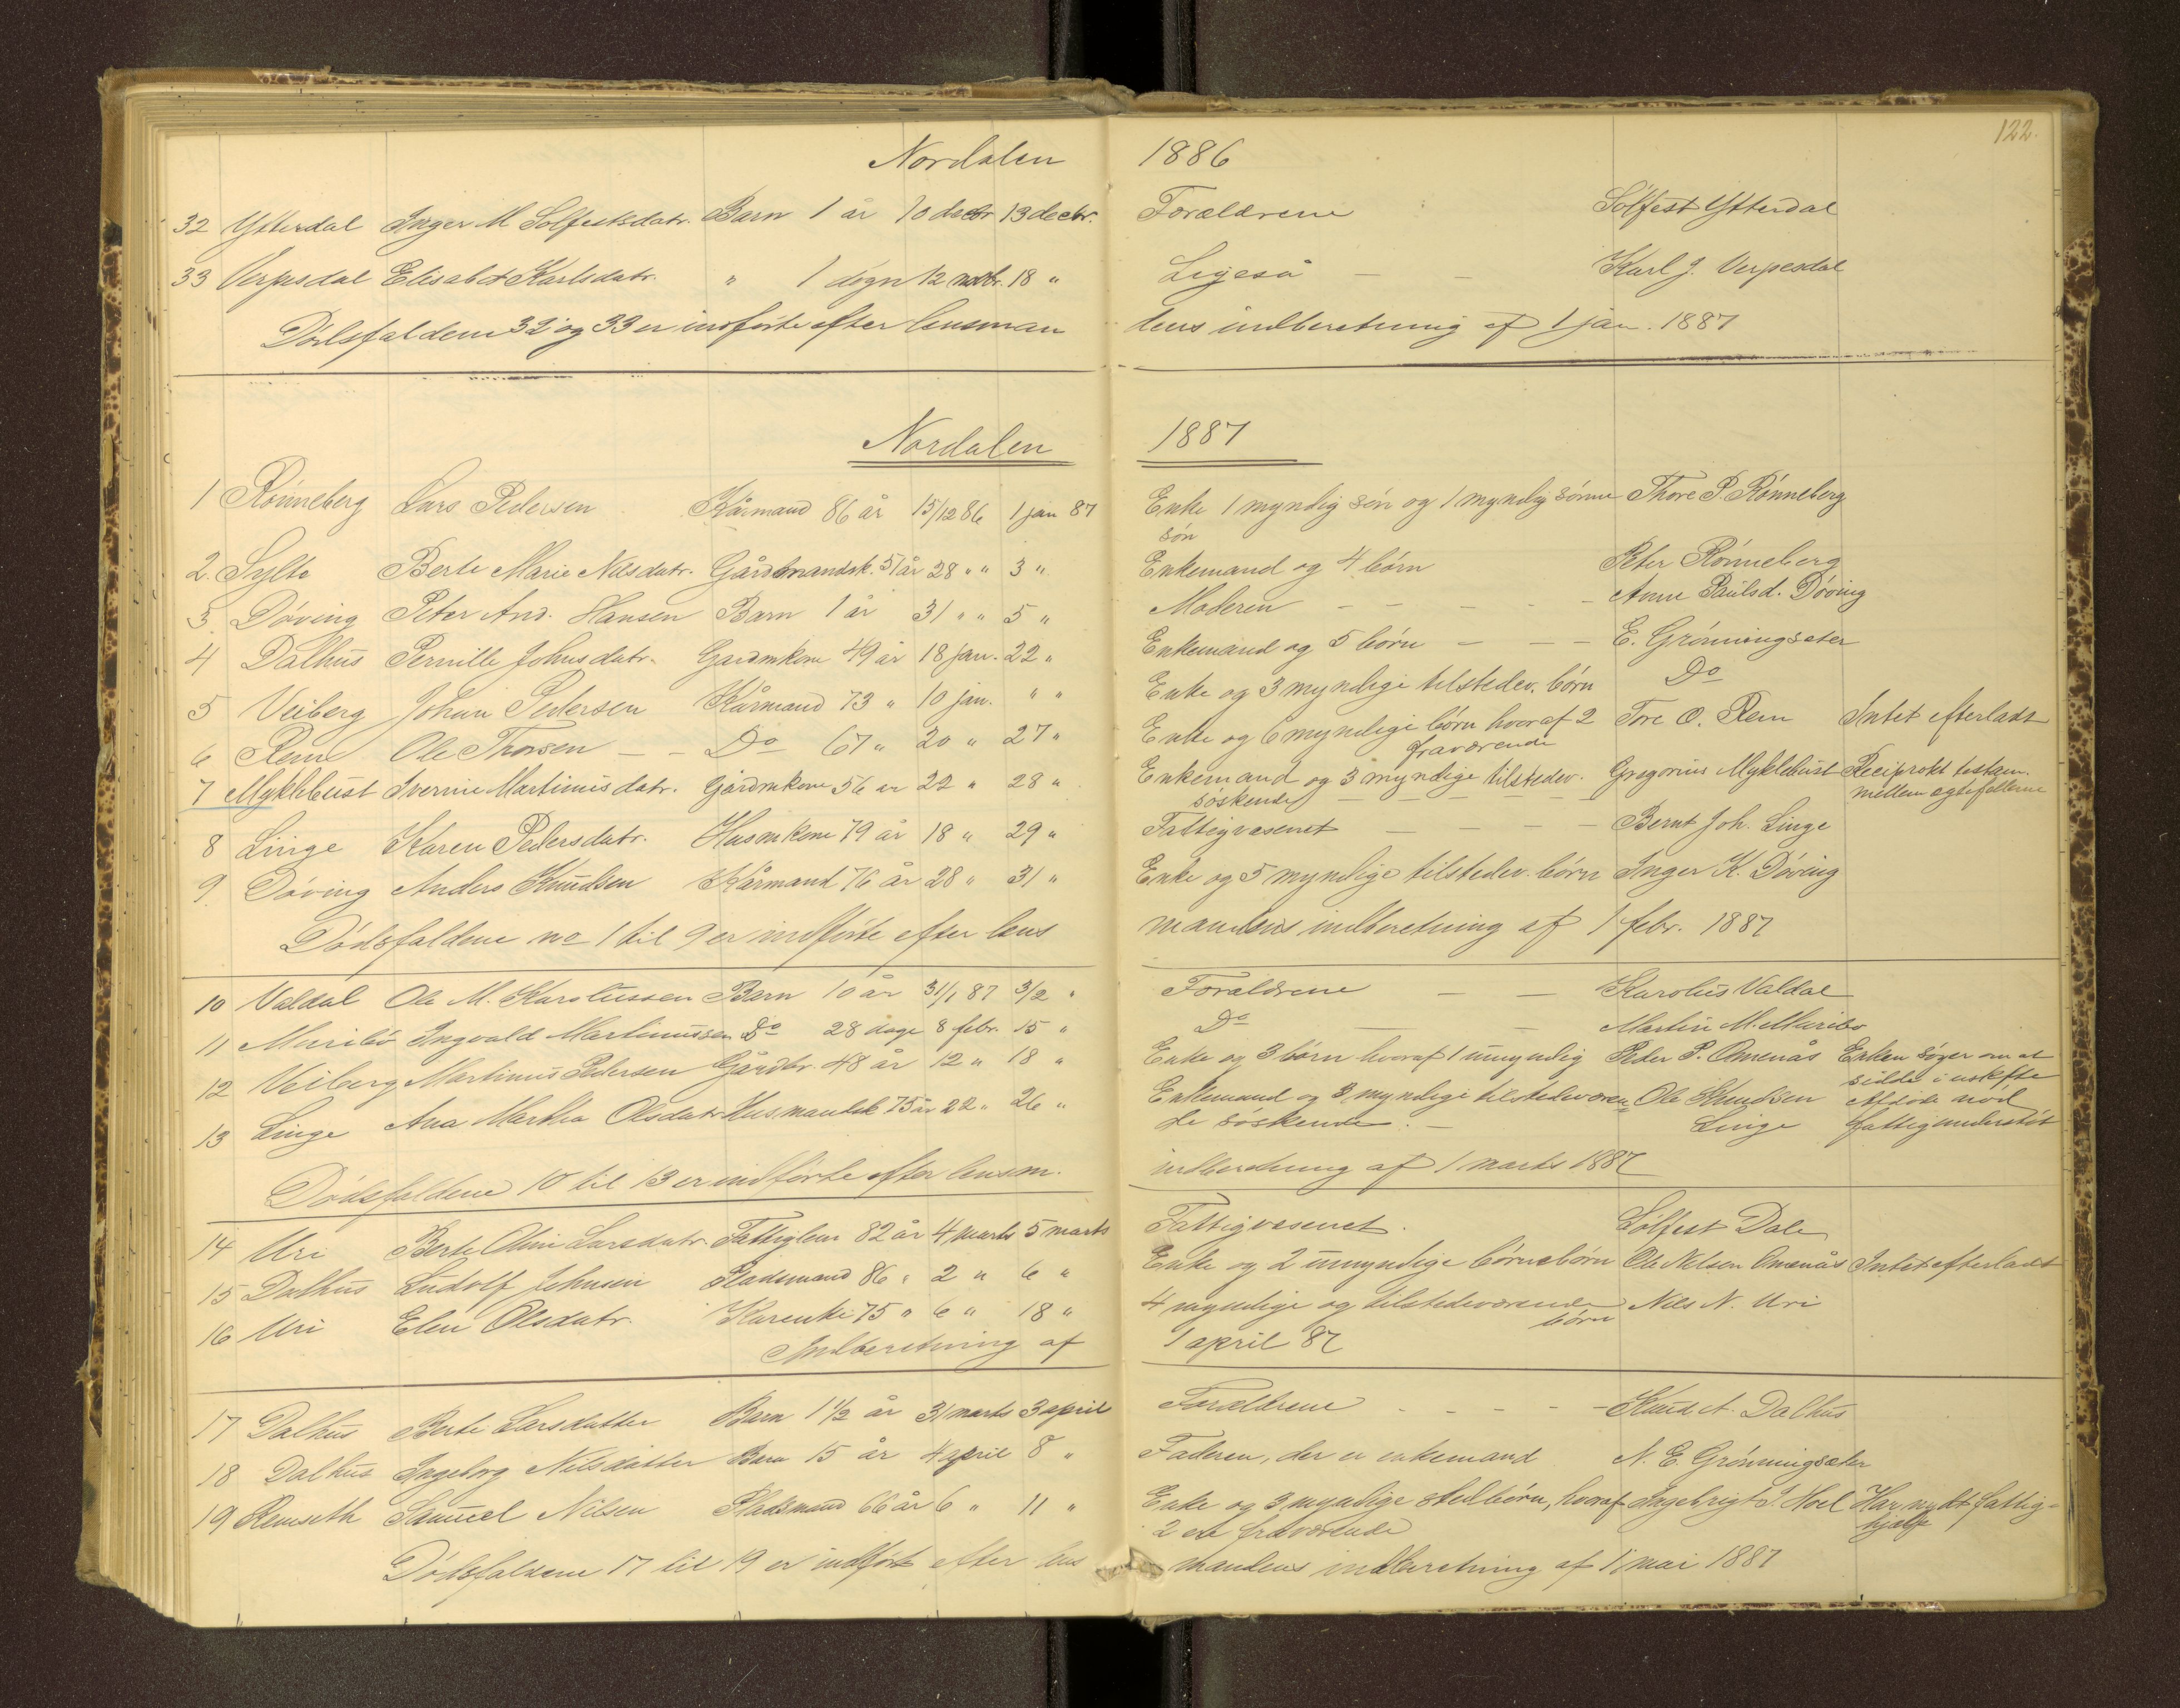 122.
Nordalen 1886
32 Ytterdal Inger M Solfestsdatr. Barn 1 år 10 decbr 13 decbr. Forældrene Solfest Ytterdal
33 Verpesdal Elisabet Karlsdatr. " 1 døgn 12 novbr. 18 " Ligeså — — Karl J. Verpesdal
Dødsfaldene 32 og 33 er indførte efter lensman dens indberetning af 1 jan. 1887
Nordalen 1887
1 Rønneberg Lars Pedersen Kårmand 86 år 15/12 86 1 jan 87 Enke 1 myndig søn og 1 myndig sønne Thore P. Rønneberg
søn
2. Sylte Berte Marie Nilsdatr. Gårdmandsk. 51 år 28 " " 3 " Enkemand og 4 børn Peter Rønneberg
3 Døving Peter And. Hansen Barn 1 år 31 " " 5 " Moderen — — — — — Anne Paulsd. Døving
4 Dalhus Pernille Johnsdatr. Gardmkone 49 år 18 jan. 22 " Enkemand og 5 børn — — — E. Grønningsæter
5 Veiberg Johan Pedersen Kårmand 73 " 10 jan. " " Enke og 3 myndige tilstedev. børn Do
6 Rem Ole Thorsen — — Do 67 " 20 " 27 " Enke og 6 myndige børn hvoraf 2 Tore O. Rem Intet efterladt
fraværende
7 Myklebust Iverine Martinusdatr. Gårdmkone 56 år 22 " 28 " Enkemand og 3 myndige tilstedev. Gregorius Myklebust Reciprokt testam.
søskende — — — — — mellem ægtefællerne
8 Linge Karen Pedersdatr. Husmkone 79 år 18 " 29 " Fattigvæsenet — — — — Bernt Joh. Linge
9. Døving Anders Knudsen Kårmand 76 år 28 " 31 " Enke og 5 myndige tilstedev. børn Inger K. Døving
Dødsfaldene no 1 til 9 er indførte efter lens mandens indberetning af 1 febr. 1887
10 Valdal Ole M. Karolussen Barn 10 år 31/1 87 3/2 " Forældrene — — Karolus Valdal
11 Muribø Ingvald Martinussen Do 28 dage 8 febr. 15 " Do — — Martin M. Muribø
12 Veiberg Martinus Pedersen Gårdbr. 48 år 12 " 18 " Enke og 3 børn hvoraf 1 umyndig Peder P. Omenås Enken søger om at
sidde i uskifte
13 Linge Ana Martha Olsdatr Husmandsk 75 år 22 " 26 " Enkemand og 3 myndige tilstedeværen Ole Knudsen Afdøde nød
de søskende. — Linge fattigunderstøt
Dødsfaldene 10 til 13 er indførte efter lensm. indberetning af 1 marts 1887
14 Uri Berte Oline Larsdatr Fattiglem 82 år 4 marts 5 marts Fattigvæsenet. Solfest Dale
15 Dalhus Ludolf Johnsen Pladsmand 86 " 2 " 6 " Enke og 2 umyndige børnebørn Ole Nilsen Omenås Intet efterladt
16 Uri Elen Olsdatr. Kårenke 75 " 6 " 18 " 4 myndige og tilstedeværende Nils N. Uri
børn
Indberetning af 1 april 87
17 Dalhus Berte Larsdatter Barn 1 1/2 år 31 marts 3 april Forældrene - - - - - Knud A. Dalhus
18 Dalhus Ingeborg Nilsdatter Barn 15 år 4 april 8 " Faderen, der er enkemand N. E. Grønningsæter
19 Remseth Samuel Nilsen Pladsmand 66 år 6 " 11 " Enke og 3 myndige stedbørn, hvoraf Ingebrigt J. Hoel Har nydt fattig=
2 ere fraværende hjælp
Dødsfaldene 17 til 19 er indført efter lens mandens indberetning af 1 mai 1887